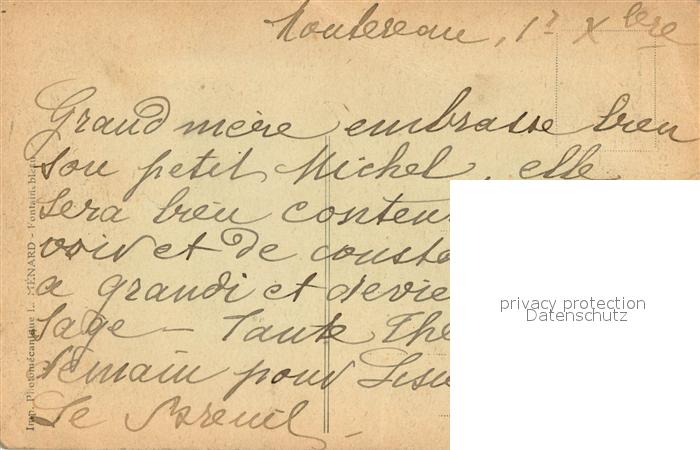 Montereau, 17 Xbere
Grand mère embrasse bien
son petit Michel, elle
sera bien conten
voir et de consta
a grandi et devie
sage — Tante Thé
demain pour Lisie
Le Breuil —
Imp. Photomécanique L. MÉNARD - Fontainebleau
privacy protection
Datenschutz